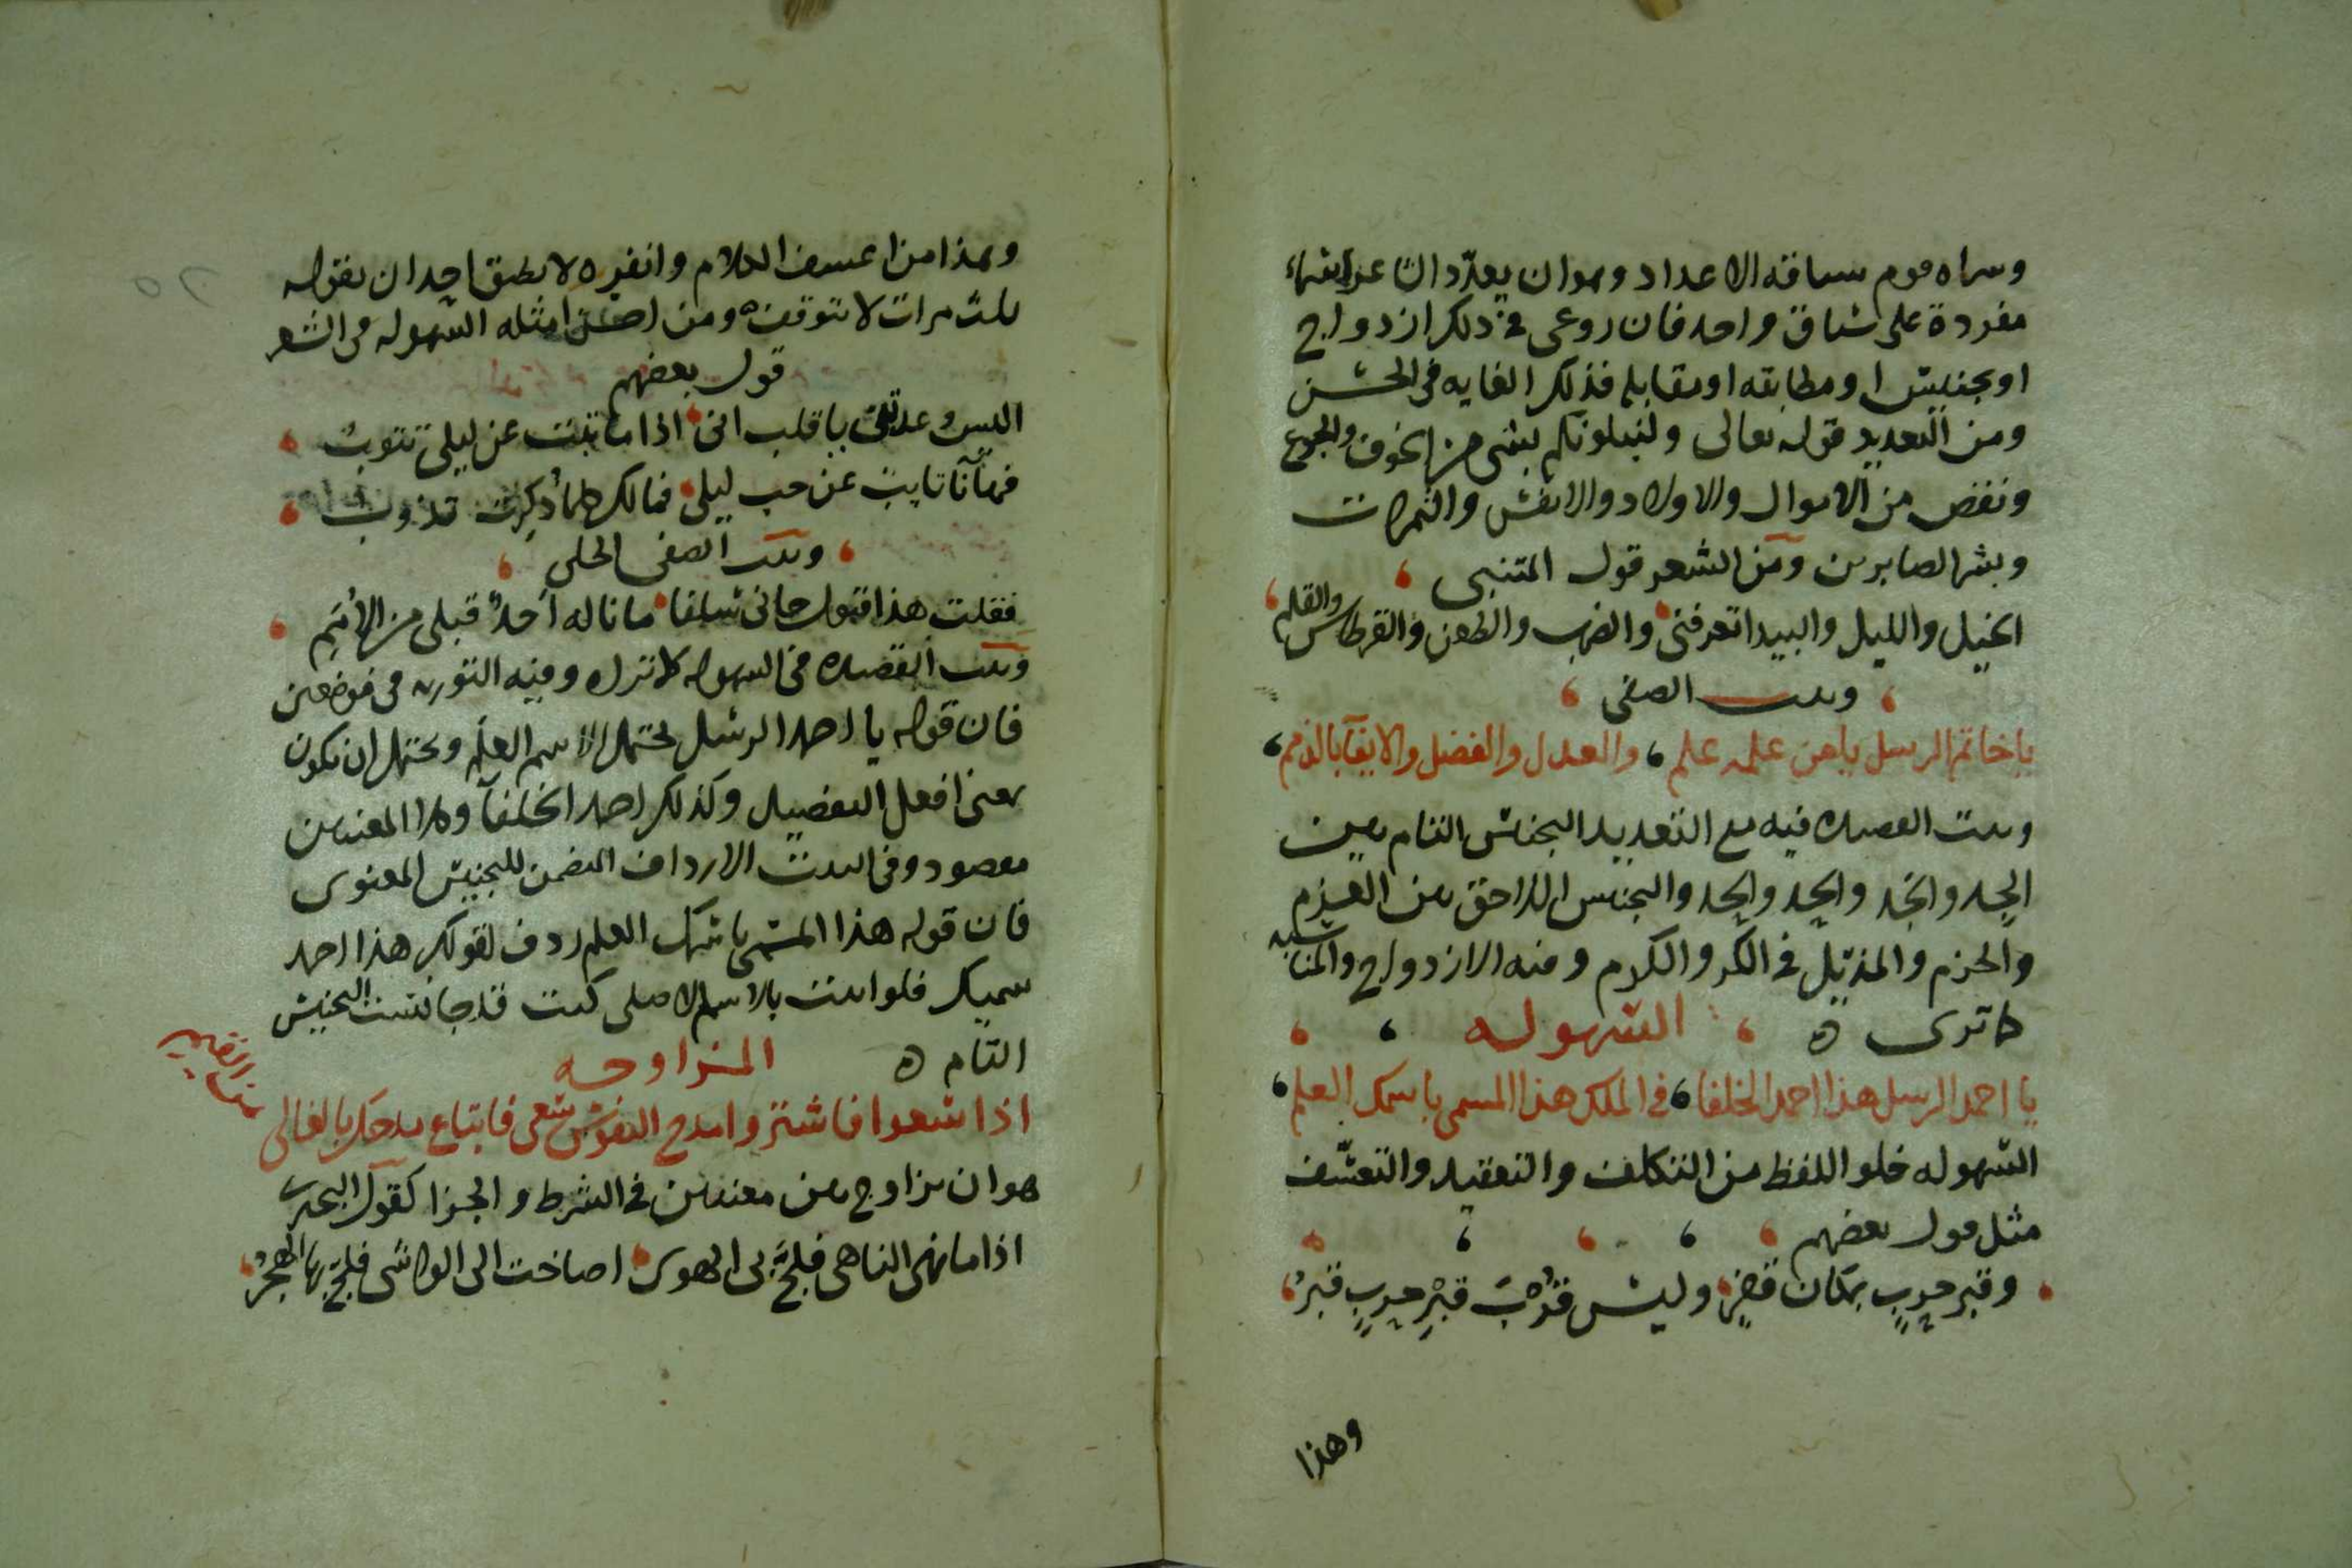 وسماه قوم سياقة الاعداد وهو ان يعدد الشاعر اشياء
مفردة على سياق واحد فان روعى فى ذلك ازدواج
او تجنيس او مطابقه او مقابله فذلك الغايه فى الحسن
ومن التعديد قوله تعالى ولنبلونكم بشى من الخوف والجوع
ونقص من الاموال والاولاد والانفس والثمرات
وبشر الصابرين ومن الشعر قول المتنبى
الخيل والليل والبيدا تعرفنى والضرب والطعن والقرطاس والقلم
وبيت الصفى
يا خاتم الرسل يا من علمه علم والعدل والفضل والايفآ بالذمم
وبيت القصيده فيه مع التعديد الجناس التام بين
الجد والجد والجد والجد والتجنيس اللاحق بين العزم
والحزم والمذيل فى الكر والكرم وفيه الازدواج والمناسبه
كما ترى ه السهوله
يا احمد الرسل هذا احمد الخلفا فى الملك هذا المسمى باسمك العلم
السهوله خلو اللفظ من التكلف والتعقيد والتعسف
مثل قول بعضهم
وقبر حرب بمكان قفر وليس قرب قبر حرب قبر
وهذا
وهذا من اعسف الكلام وانفره لا يطيق احد ان يقوله
ثلث مرات لا يتوقف ومن احسن امثله السهوله فى الشعر
قول بعضهم
اليس وعدتنى يا قلب انى اذا ما تبت عن ليلى تتوب
فها انا تايب عن حب ليلى فما لك كلما ذكرت تذوب
وبيت الصفى الحلى
فقلت هذا قبول جانى سلفا ما ناله احد قبلى من الامم
وبيت القصيده فى السهوله كما تراه وفيه التوريه فى موضعين
فان قوله يا احمد الرسل يحتمل الاسم العلم ويحتمل ان يكون
بمعنى افعل التفضيل وكذلك احمد الخلفآ وكلا المعنيين
مقصود وفى البيت الارداف المضمن للتجنيس المعنوى
فان قوله هذا المسمى باسمك العلم ردف لقولك هذا احمد
سميك فلو اتيت بالاسم الاصلى كنت قد جانست التجنيس
التام ه المزاوجه
اذا سعوا فاشتروا امدح النفوس سعى فابتاع مدحك بالغالى
هو ان يزاوج بين معنيين فى الشرط والجزا كقول البحترى
اذا ما نهى الناهى فلج بى الهوى اصاخت الى الواشى فلج بها الهجر